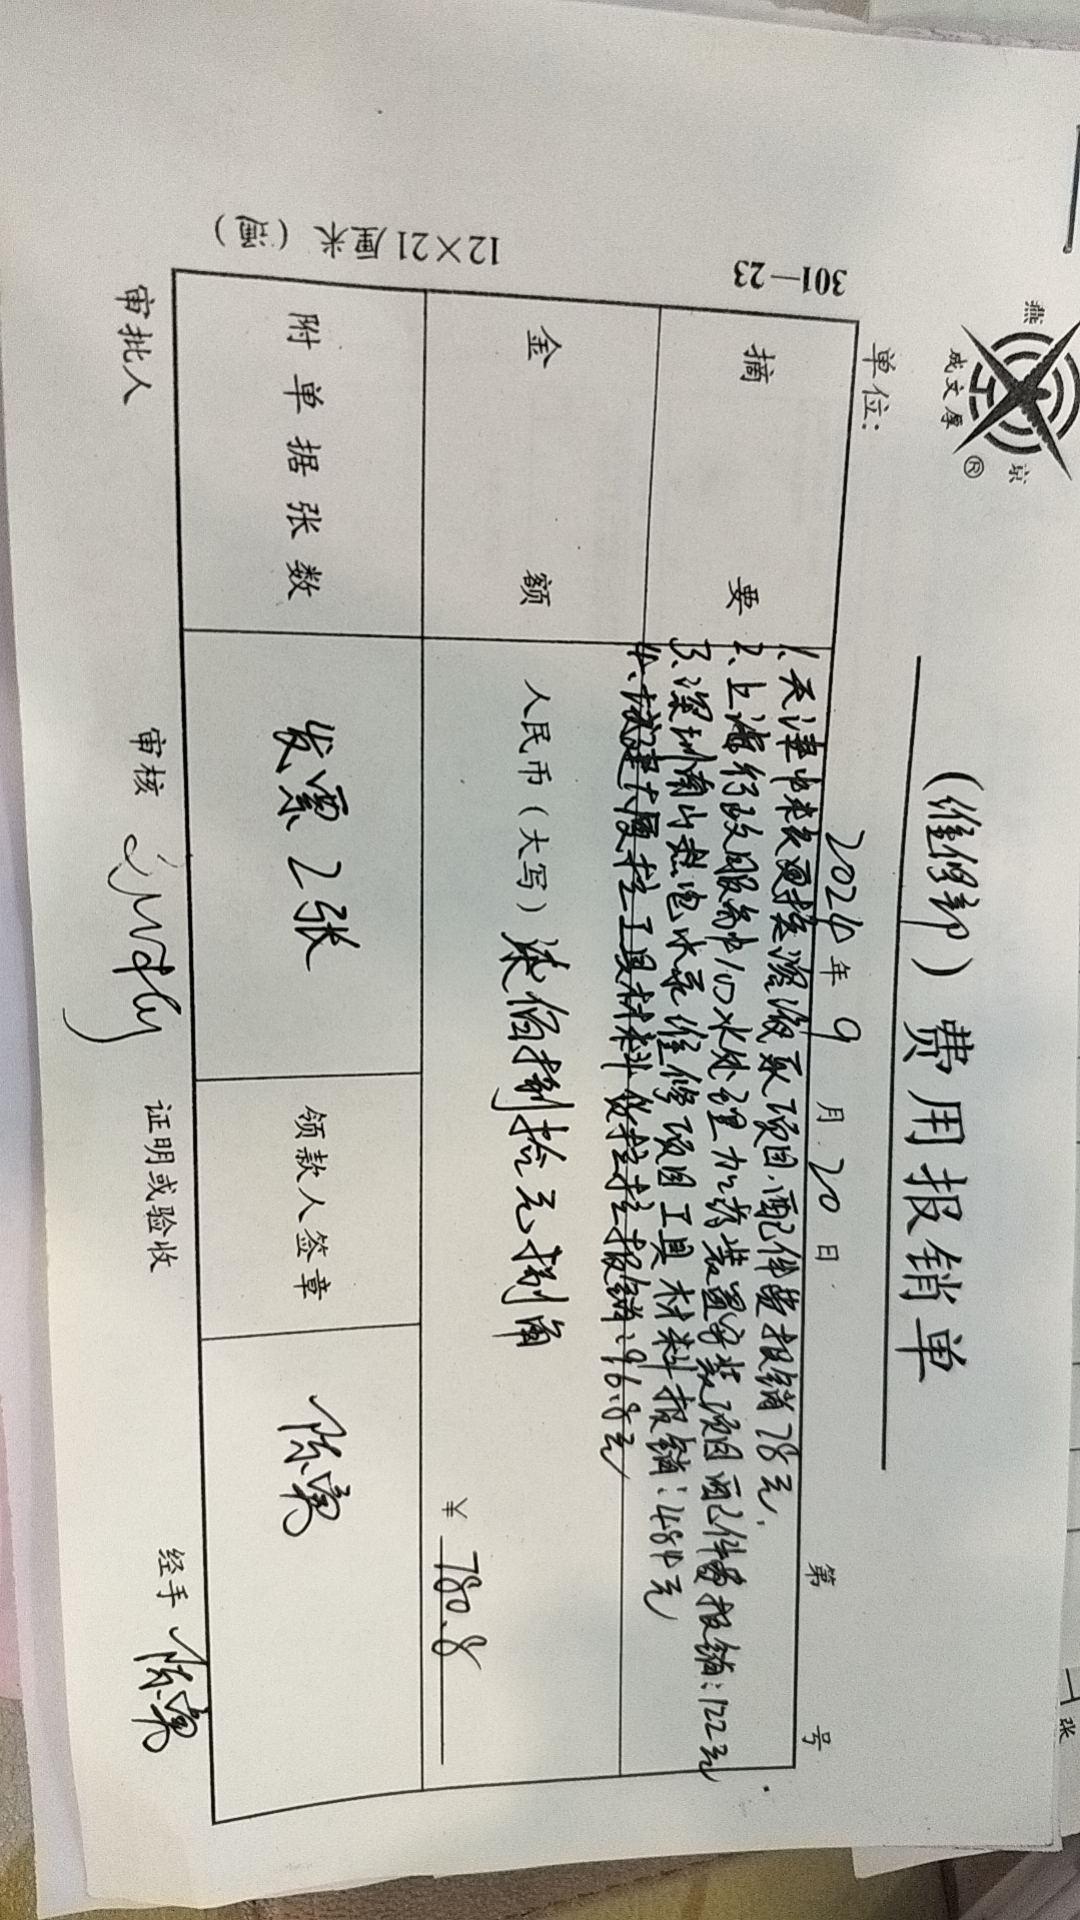 燕 京
成文厚 ®
(维修部) 费用报销单
2024年 9月 20日
单位: 第 号
摘要
1、天津中水衣更换潜液泵项目,配件费报销78元.
2、上海行政服务中心水处理加药装置安装项目配件费报销:122元
3、深圳南山热电水泵维修项目工具材料报销:484元
4、城建大厦 工具材料 报销:96.8元
金额
人民币(大写)柒佰捌拾元捌角
¥ 780.8
附单据张数
发票2张
领款人签章
陈亮
审批人
审核
证明或验收
经手 陈亮
301—23
12×21厘米 (通)
张